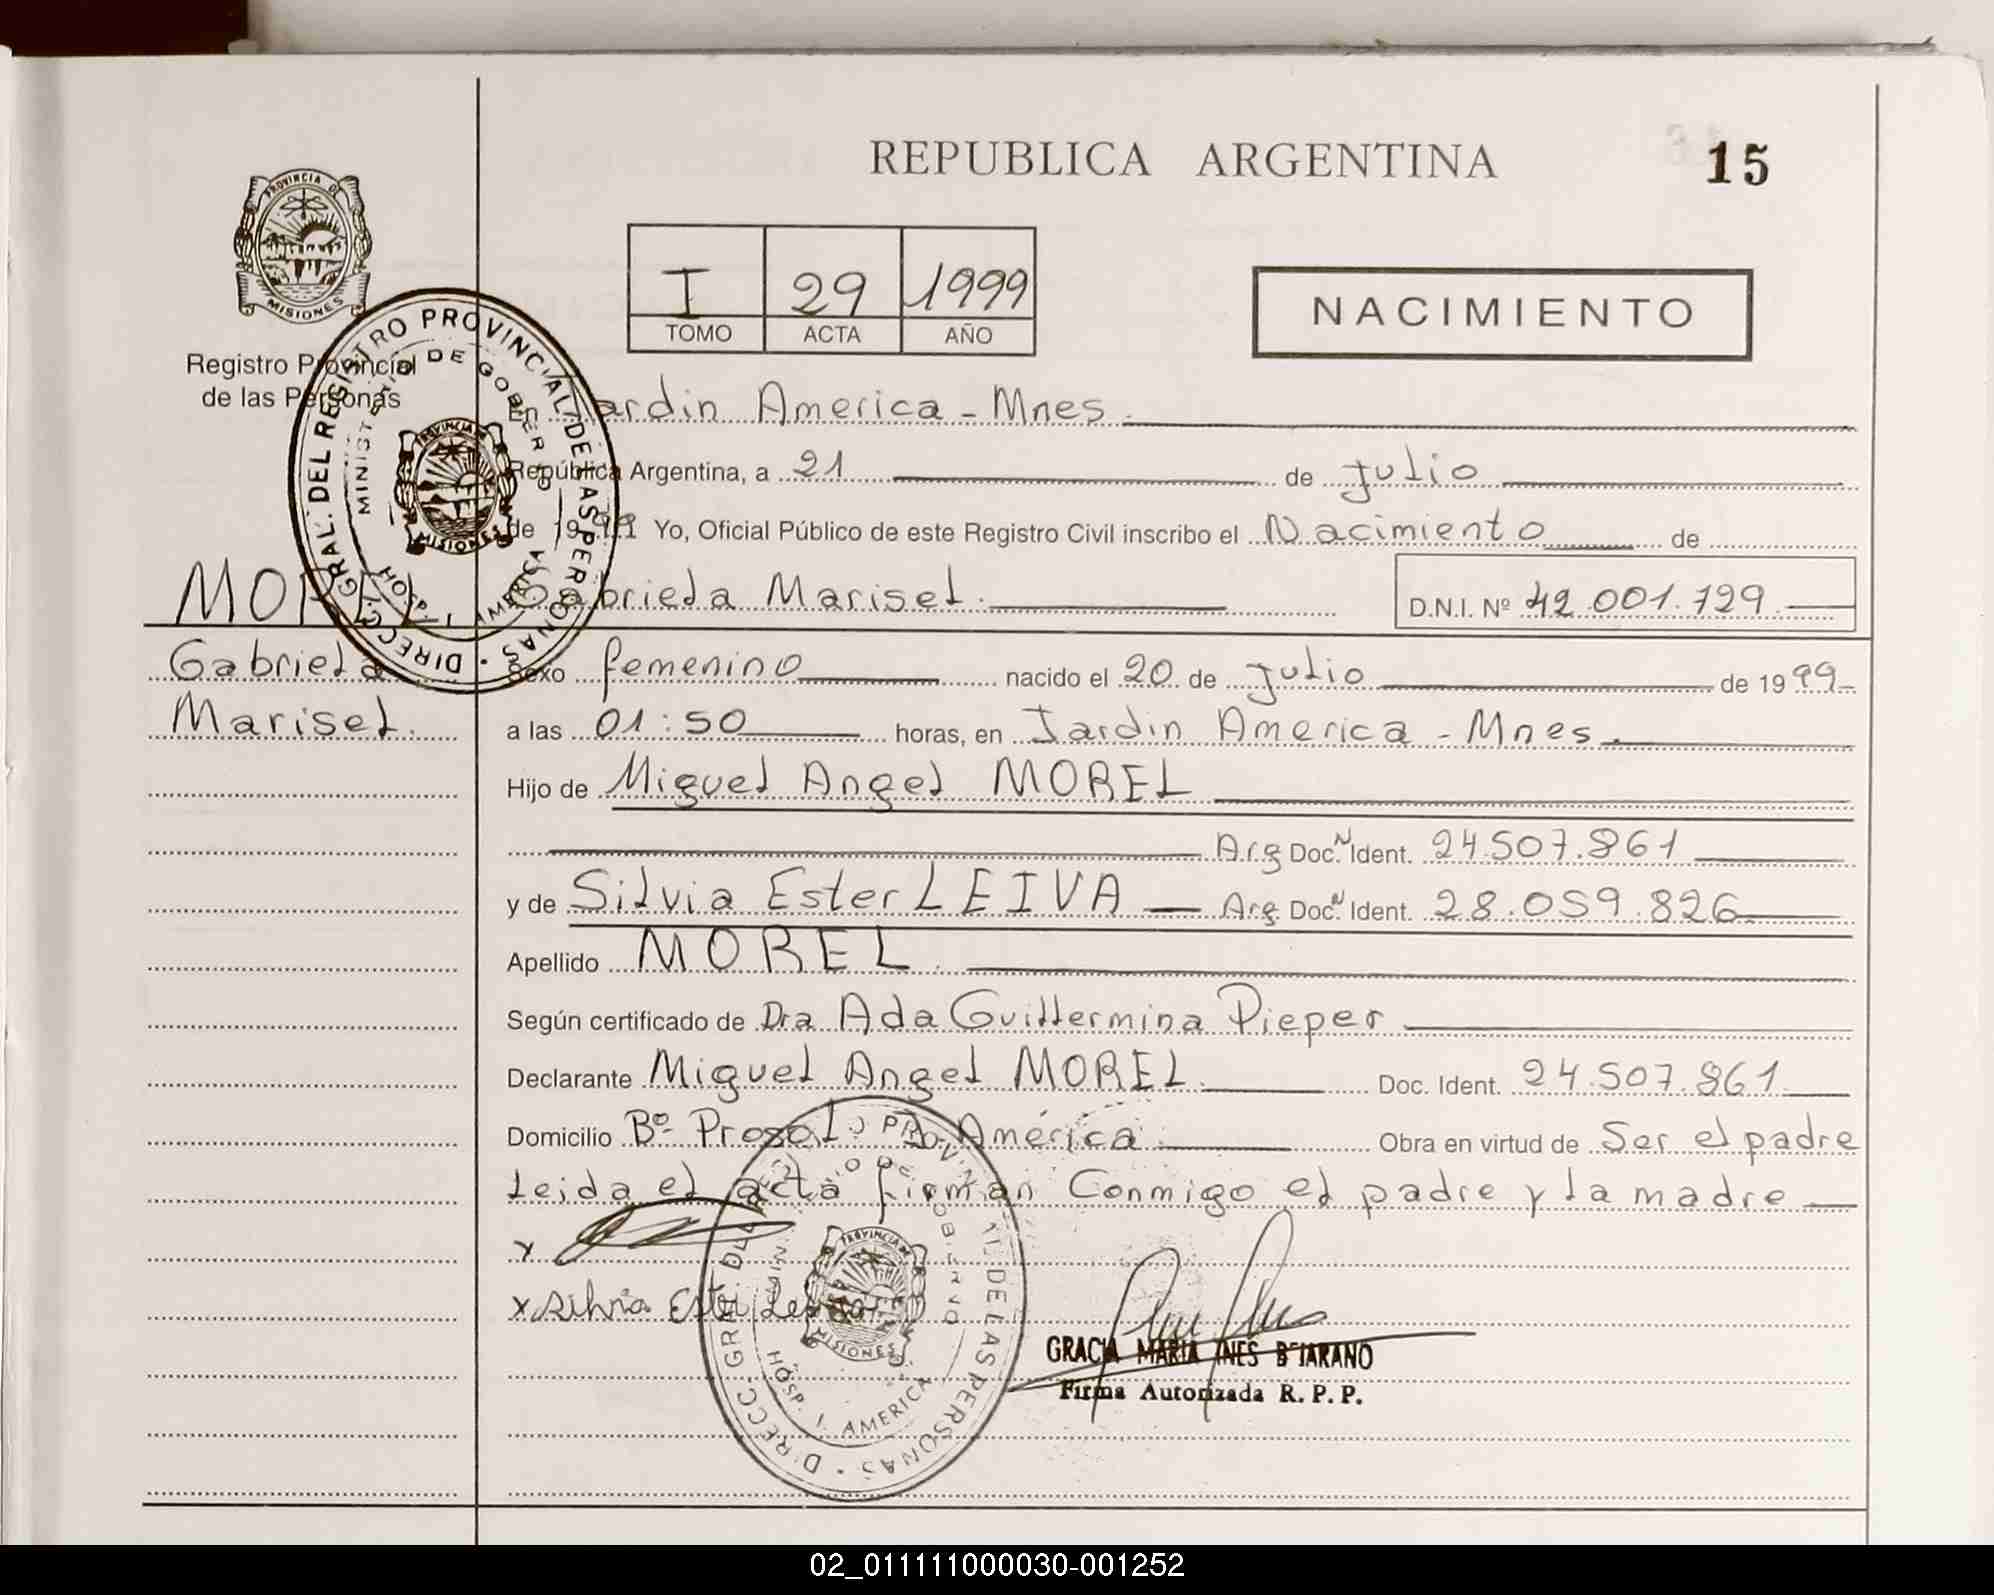 REPUBLICA ARGENTINA
15
PROVINCIA DE
MISIONES
Registro Provincial
de las Personas
I 29 1999
TOMO ACTA AÑO
NACIMIENTO
DIRECC. GRAL. DEL REGISTRO PROVINCIAL DE LAS PERSONAS
MINISTERIO DE GOBIERNO
HOSP. J. AMERICA
PROVINCIA DE
MISIONES
En Jardin America - Mnes.
República Argentina, a 21 de Julio
de 1999 Yo, Oficial Público de este Registro Civil inscribo el Nacimiento de
Gabriela Marisel. D.N.I. Nº 42.001.729.
MOREL
Gabriela
Marisel.
Sexo femenino nacido el 20 de Julio de 1999-
a las 01:50 horas, en Jardin America - Mnes.
Hijo de Miguel Angel MOREL
Arg Doc. N Ident. 24.507.861
y de Silvia Ester LEIVA — Arg. Doc. N Ident. 28.059.826
Apellido MOREL.
Según certificado de Dra Ada Guillermina Pieper
Declarante Miguel Angel MOREL. Doc. Ident. 24.507.861.
Domicilio Bº Prosol. Jo América. Obra en virtud de Ser el padre
Leida el acta firman Conmigo el padre y la madre —
x
x Silvia Ester Leiva
DIRECC. GRAL. DEL REGISTRO PROVINCIAL DE LAS PERSONAS
MINISTERIO DE GOBIERNO
HOSP. J. AMERICA
PROVINCIA DE
MISIONES
GRACIA MARIA INES BEJARANO
Firma Autorizada R. P. P.
02_011111000030-001252